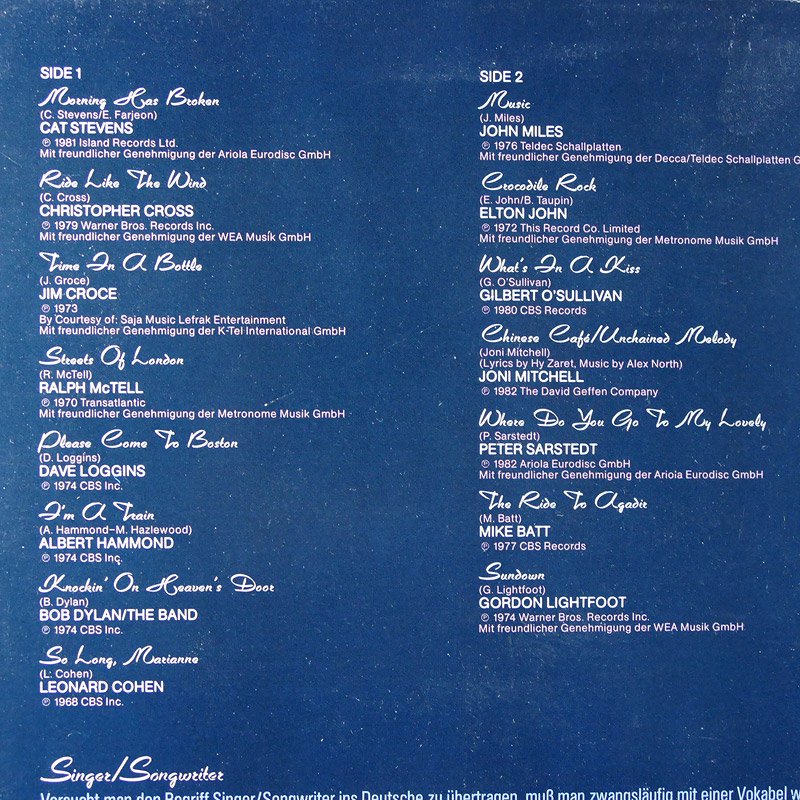 SIDE 1
Morning Has Broken
(C. Stevens/E. Farjeon)
CAT STEVENS
℗ 1981 Island Records Ltd.
Mit freundlicher Genehmigung der Ariola Eurodisc GmbH
Ride Like The Wind
(C. Cross)
CHRISTOPHER CROSS
℗ 1979 Warner Bros. Records Inc.
Mit freundlicher Genehmigung der WEA Musik GmbH
Time In A Bottle
(J. Groce)
JIM CROCE
℗ 1973
By Courtesy of: Saja Music Lefrak Entertainment
Mit freundlicher Genehmigung der K-Tel International GmbH
Streets Of London
(R. McTell)
RALPH McTELL
℗ 1970 Transatlantic
Mit freundlicher Genehmigung der Metronome Musik GmbH
Please Come To Boston
(D. Loggins)
DAVE LOGGINS
℗ 1974 CBS Inc.
I'm A Train
(A. Hammond–M. Hazlewood)
ALBERT HAMMOND
℗ 1974 CBS Inc.
Knockin' On Heaven's Door
(B. Dylan)
BOB DYLAN/THE BAND
℗ 1974 CBS Inc.
So Long, Marianne
(L. Cohen)
LEONARD COHEN
℗ 1968 CBS Inc.
SIDE 2
Music
(J. Miles)
JOHN MILES
℗ 1976 Teldec Schallplatten
Mit freundlicher Genehmigung der Decca/Teldec Schallplatten G
Crocodile Rock
(E. John/B. Taupin)
ELTON JOHN
℗ 1972 This Record Co. Limited
Mit freundlicher Genehmigung der Metronome Musik GmbH
What's In A Kiss
(G. O'Sullivan)
GILBERT O'SULLIVAN
℗ 1980 CBS Records
Chinese Café/Unchained Melody
(Joni Mitchell)
(Lyrics by Hy Zaret, Music by Alex North)
JONI MITCHELL
℗ 1982 The David Geffen Company
Where Do You Go To My Lovely
(P. Sarstedt)
PETER SARSTEDT
℗ 1982 Ariola Eurodisc GmbH
Mit freundlicher Genehmigung der Ariola Eurodisc GmbH
The Ride To Agadir
(M. Batt)
MIKE BATT
℗ 1977 CBS Records
Sundown
(G. Lightfoot)
GORDON LIGHTFOOT
℗ 1974 Warner Bros. Records Inc.
Mit freundlicher Genehmigung der WEA Musik GmbH
Singer/Songwriter
Versucht man den Begriff Singer/Songwriter ins Deutsche zu übertragen, muß man zwangsläufig mit einer Vokabel w